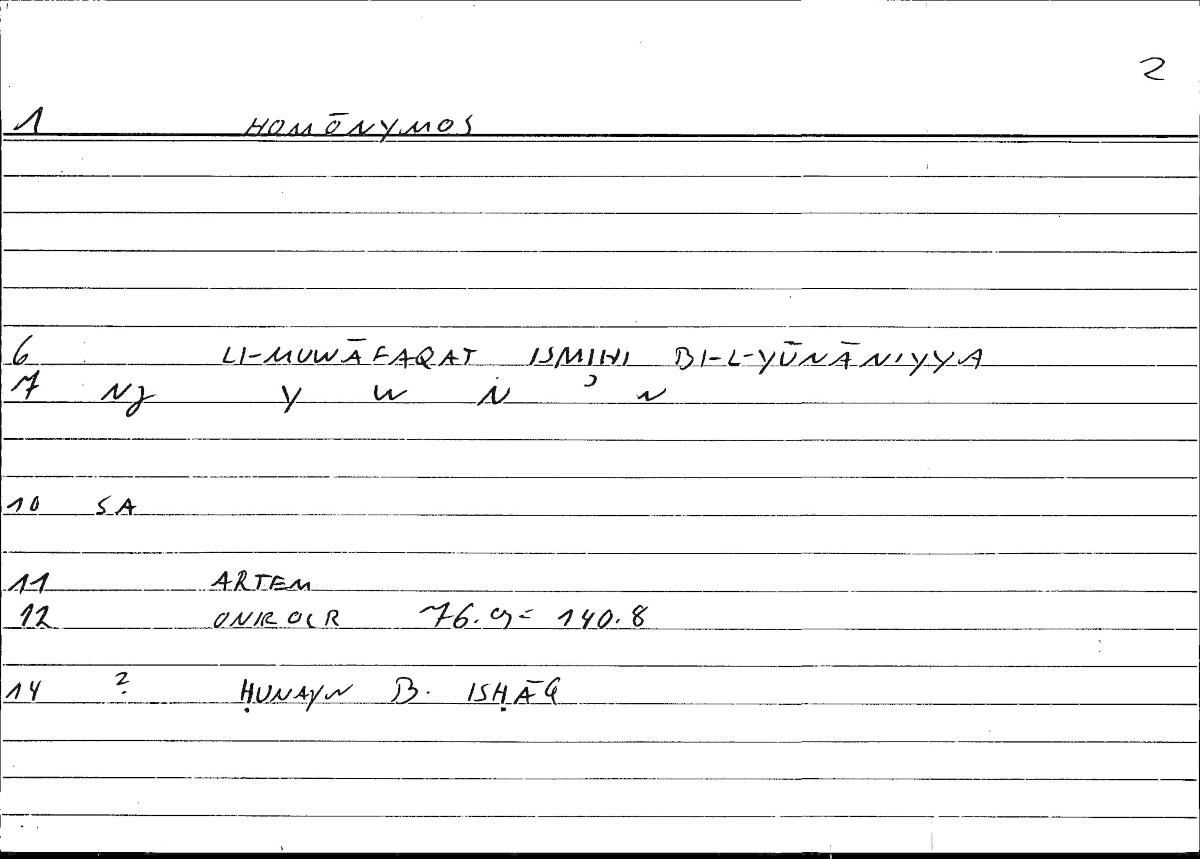 2
1 HOMŌNYMOS
6 LI-MUWĀFAQAT ISMIHI BI-L-YŪNĀNIYYA
7 NJ Y W N ʾ N
10 SA
11 ARTEM
12 ONIROCR 76.9 = 140.8
14 2 ḤUNAYN B. ISḤĀQ